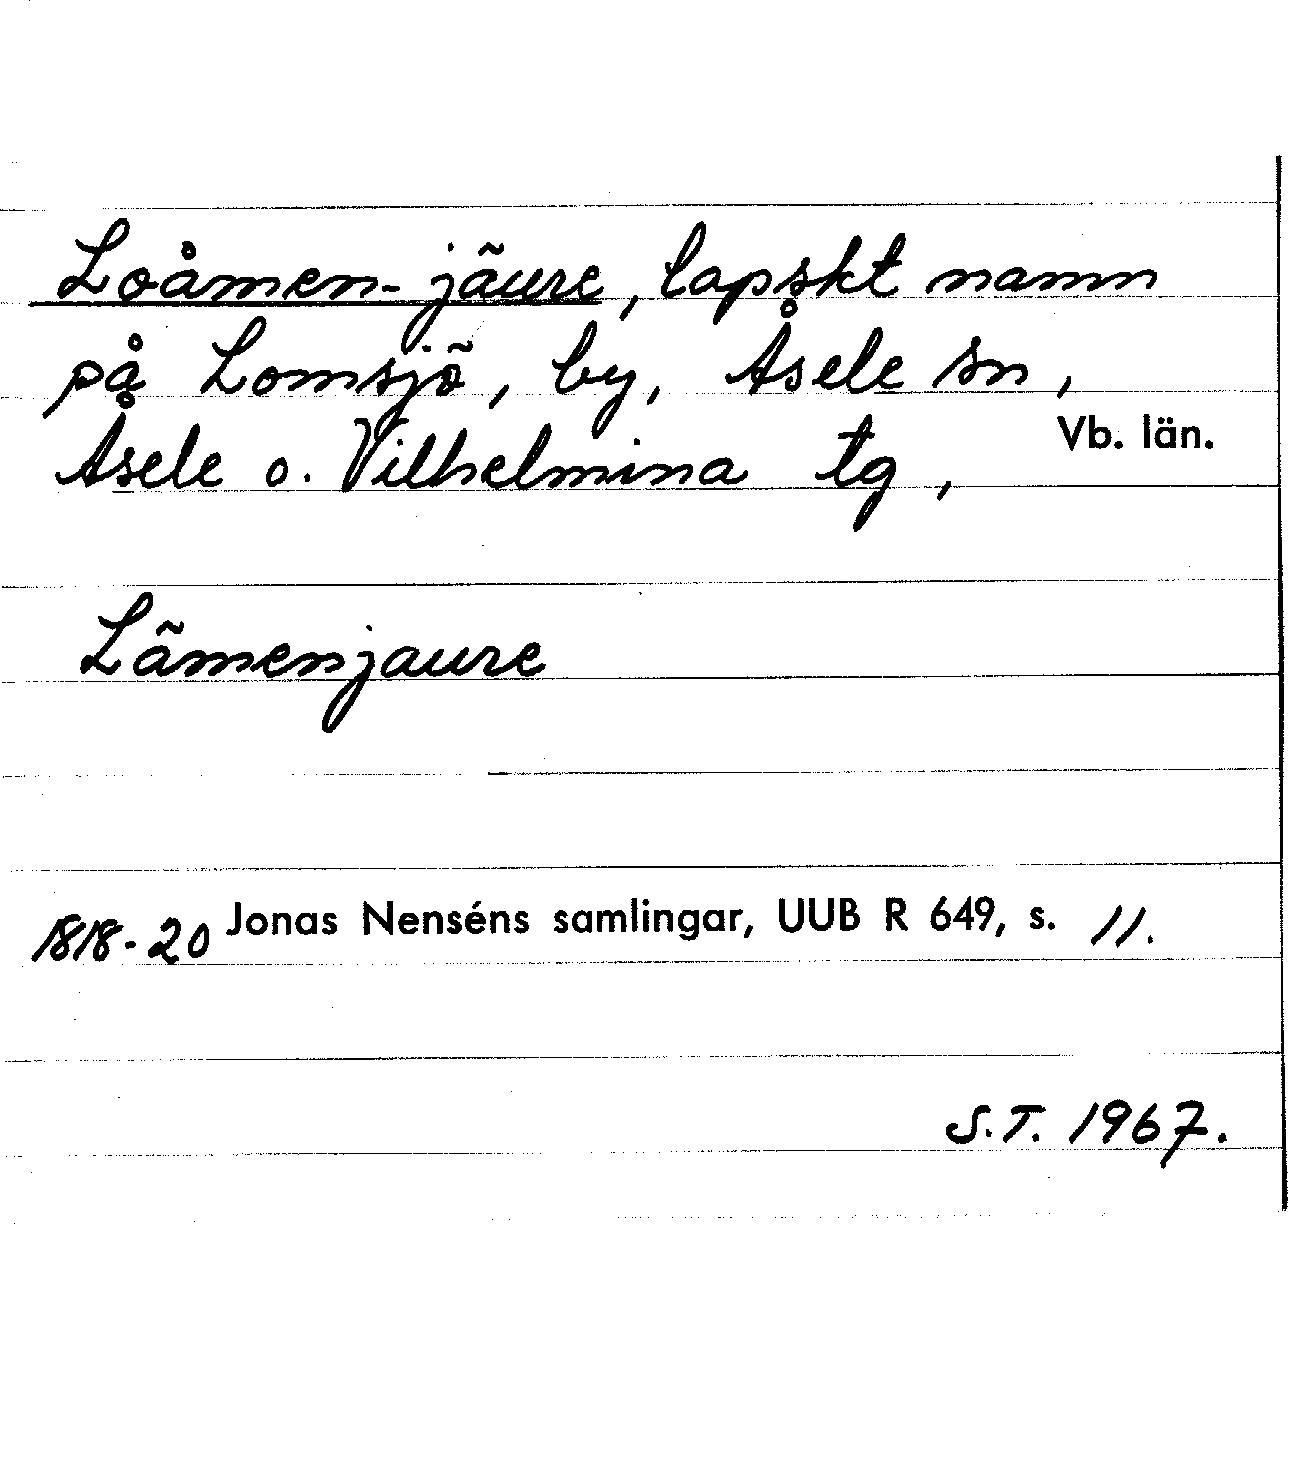 Loåmen-jäure, lapskt namn
på Lomsjö, by, Åsele sn,
Åsele o. Vilhelmina tg, Vb. län.
Lämenjaure
1818-20 Jonas Nenséns samlingar, UUB R 649, s. 11.
S.T. 1967.